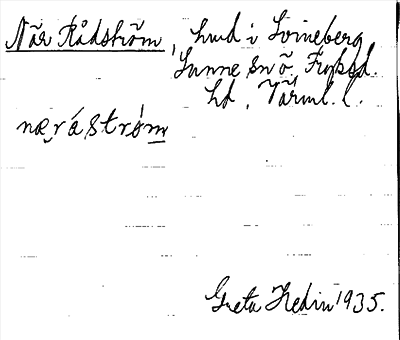 När Rådström, hmd i Svineberg
Sunne sn ö. Fryksd.
hd, Värml. l.
næ̨ráström
Greta Hedin 1935.